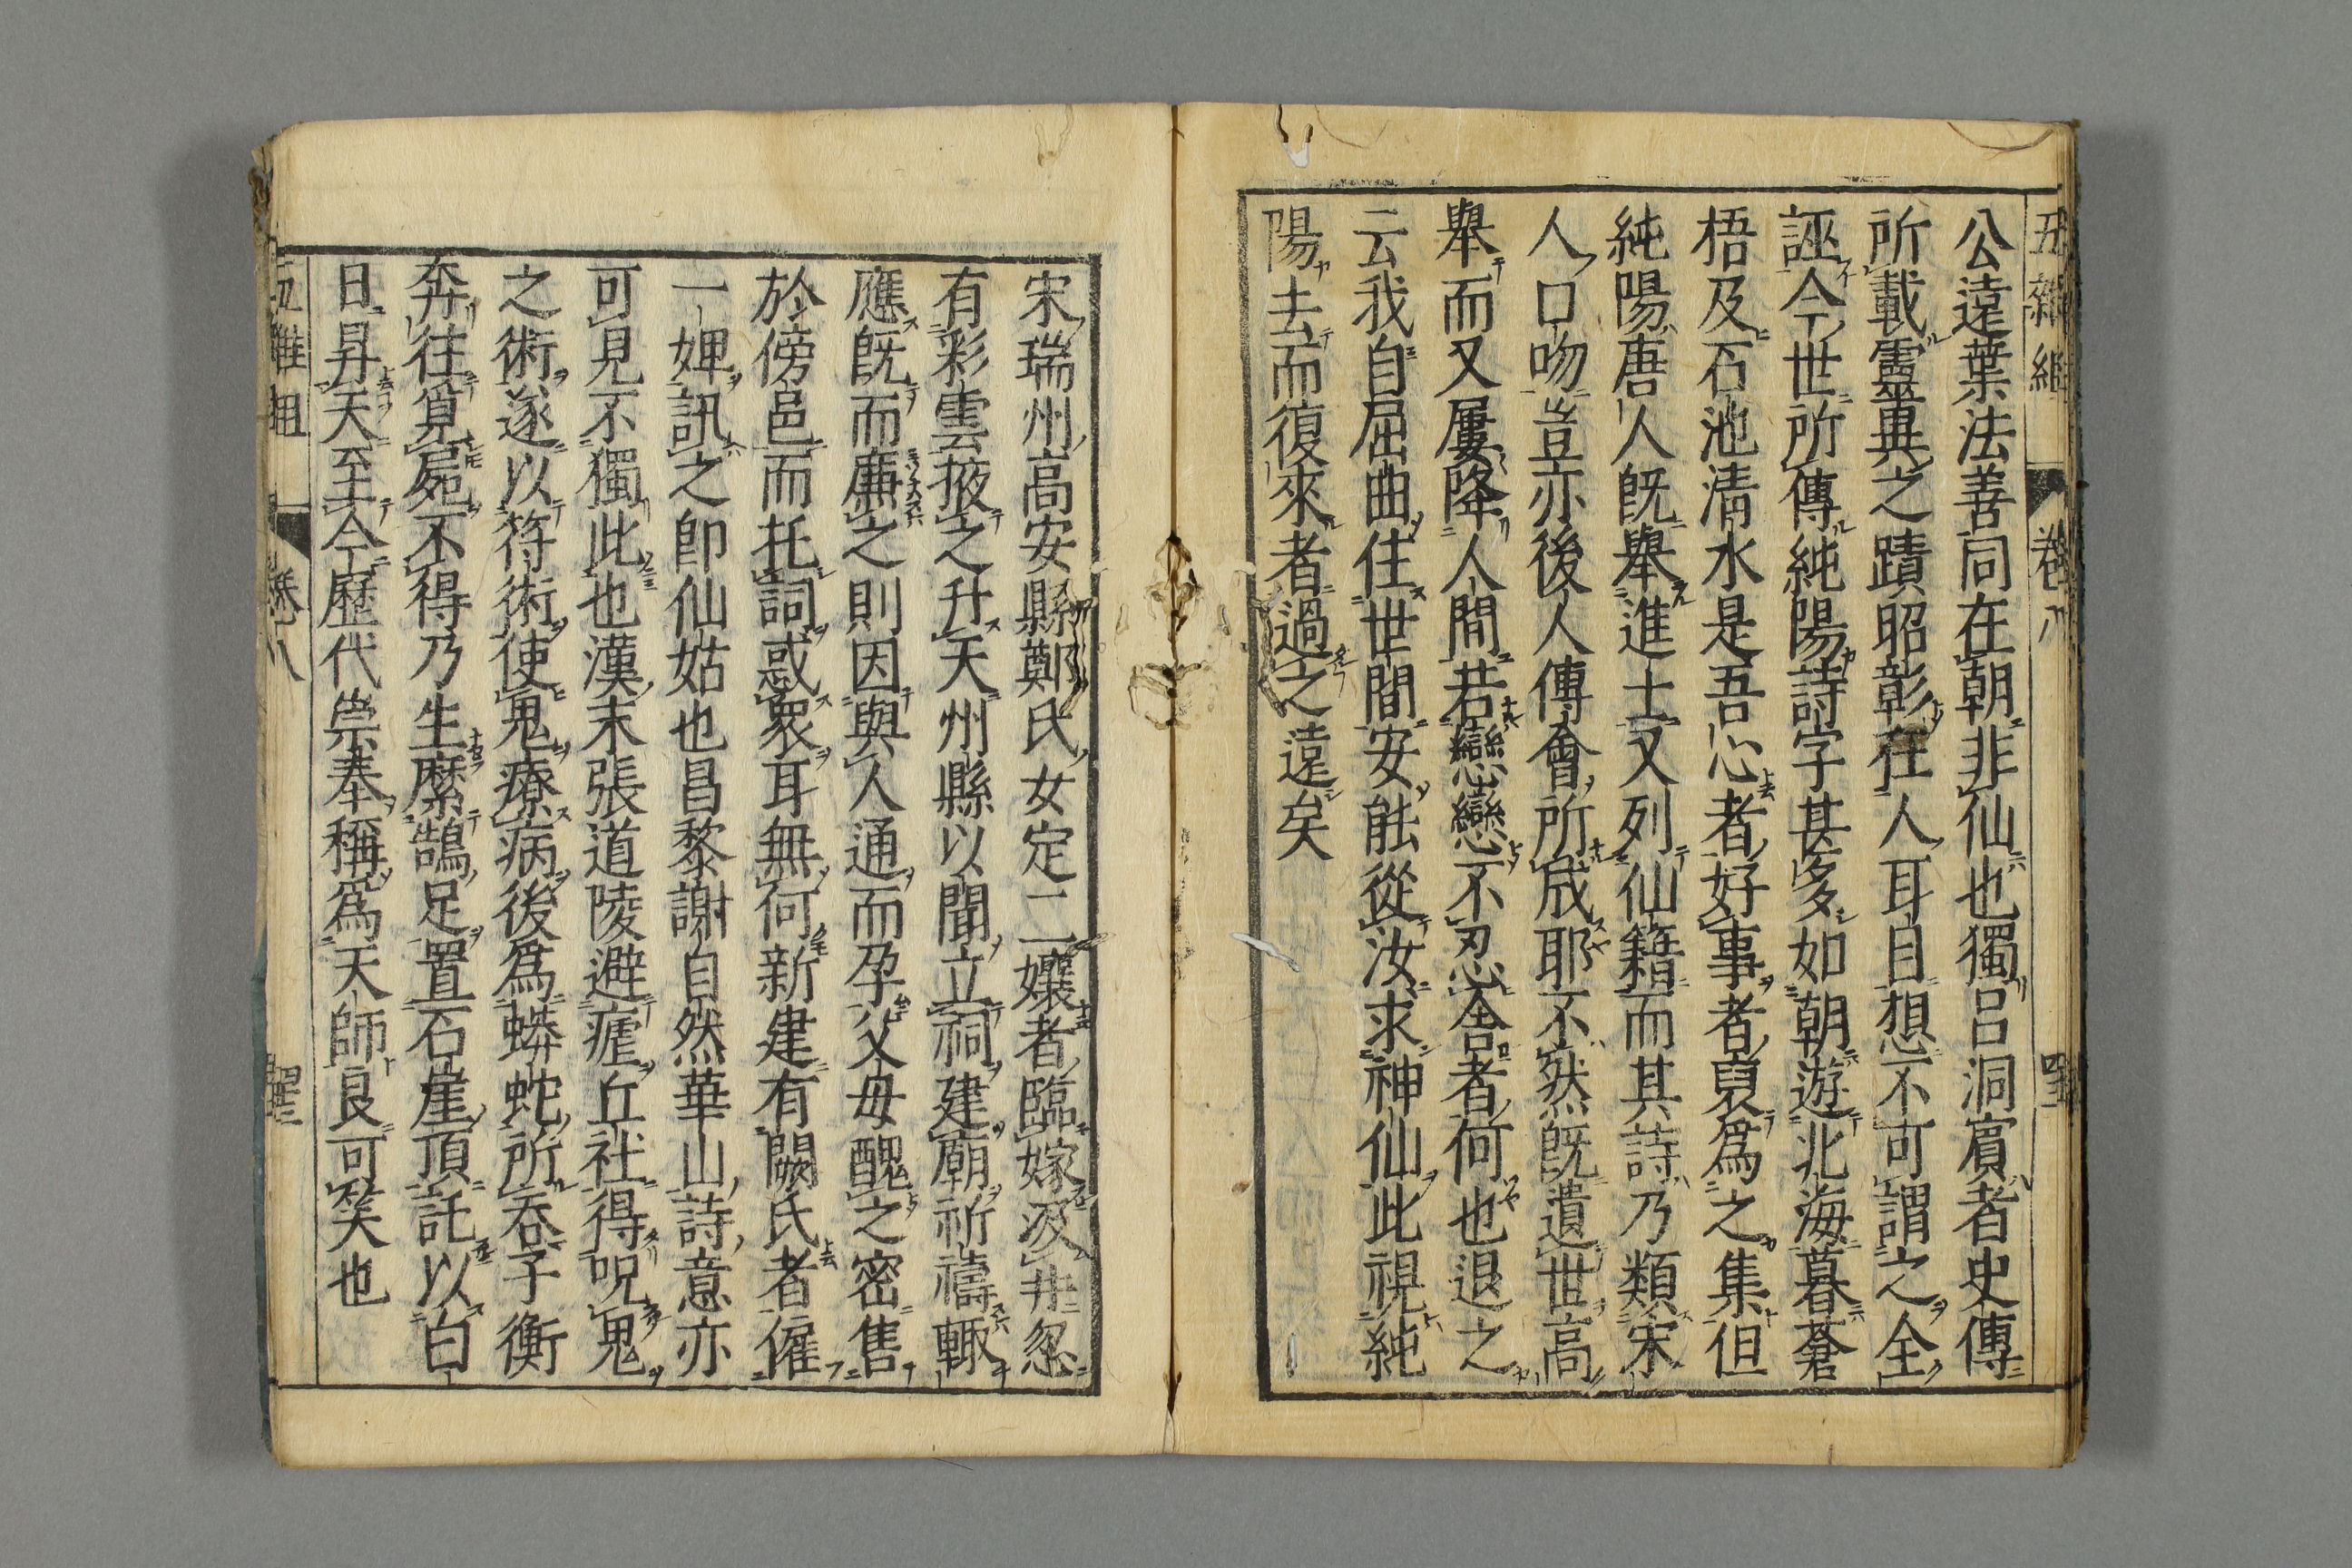 公遠葉法善同在朝非仙也獨呂洞賓者史傳
所載靈異之蹟昭彰在人耳目想不可謂之全
誣今世所傳純陽詩字甚多如朝遊北海暮蒼
梧及石池清水是吾心者好事者裒爲之集但
純陽唐人既舉進士又列仙籍而其詩乃類宋
人口吻豈亦後人傳會所成耶不然既遺世高
舉而又屢降人間若戀戀不忍舍者何也退之
云我自屈曲住世間安能從汝求神仙此視純
陽去而復來者過之遠矣
宋瑞州高安縣鄭氏女定二孃者臨嫁汲井忽
有彩雲掖之升天州縣以聞立祠建廟祈禱輒
應既而廉之則因與人通而孕父母醜之密售
於傍邑而托詞惑衆耳無何新建有闕氏者僱
一婢訊之卽仙姑也昌黎謝自然華山詩意亦
可見不獨此也漢末張道陵避瘧丘社得呪鬼
之術遂以符術使鬼療病後爲蟒蛇所吞子衡
奔往覓屍不得乃生縻鵠足置石崖頂託以白
日昇天至今歷代崇奉稱爲天師良可笑也
五雜俎 卷八